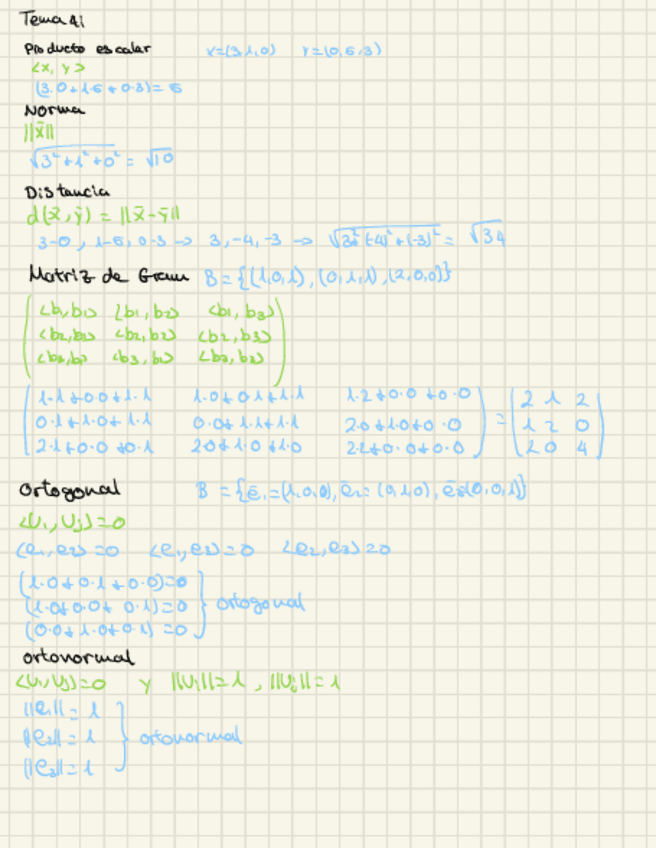 Tema 4:
Producto escalar x=(3,1,0) y=(0,5,3)
<x, y>
(3·0+1·5+0·3)=5
Norma
||x̄||
√3²+1²+0² = √10
Distancia
d(x̄,ȳ) = ||x̄-ȳ||
3-0, 1-5, 0-3 → 3,-4,-3 → √3²+(-4)²+(-3)² = √34
Matriz de Gram B={(1,0,1),(0,1,1),(2,0,0)}
<b1,b1> <b1,b2> <b1,b3>
<b2,b1> <b2,b2> <b2,b3>
<b3,b1> <b3,b2> <b3,b3>
1·1+0·0+1·1 1·0+0·1+1·1 1·2+0·0+0·0 2 1 2
0·1+1·0+1·1 0·0+1·1+1·1 2·0+1·0+0·0 = 1 2 0
2·1+0·0+0·1 2·0+1·0+1·0 2·2+0·0+0·0 2 0 4
ortogonal B={ē1=(1,0,0), ē2=(0,1,0), ē3(0,0,1)}
<Ui,Uj>=0
<e1,e2>=0 <e1,e3>=0 <e2,e3>=0
(1·0+0·1+0·0)=0
(1·0+0·0+0·1)=0 } ortogonal
(0·0+1·0+0·1)=0
ortonormal
<Ui,Uj>=0 y ||Ui||=1, ||Uj||=1
||e1||=1
||e2||=1 } ortonormal
||e3||=1